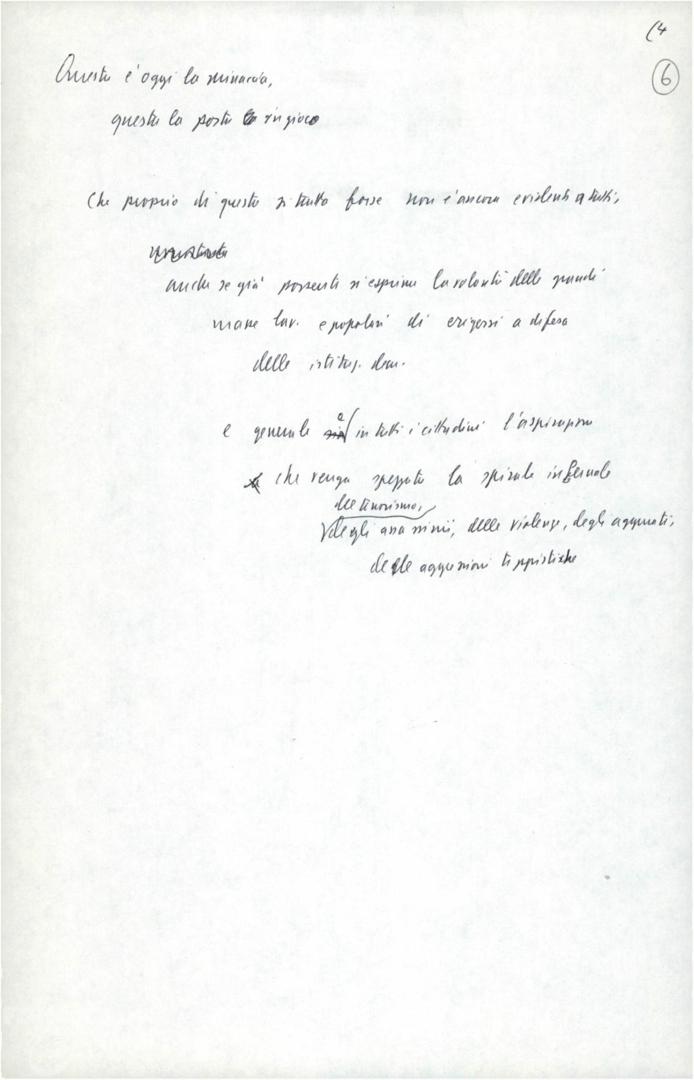 (4
6
Questa è oggi la minaccia,
questa la posta in gioco
Che proprio di questo si tratta forse non è ancora evidente a tutti,
anche se già possente si esprime la volontà delle grandi
masse lav. e popolari di erigersi a difesa
delle istituz. dem.
e generale è in tutti i cittadini l'aspirazione
che venga spezzata la spirale infernale
del terrorismo,
degli assassinii, delle violenze, degli agguati,
delle aggressioni teppistiche